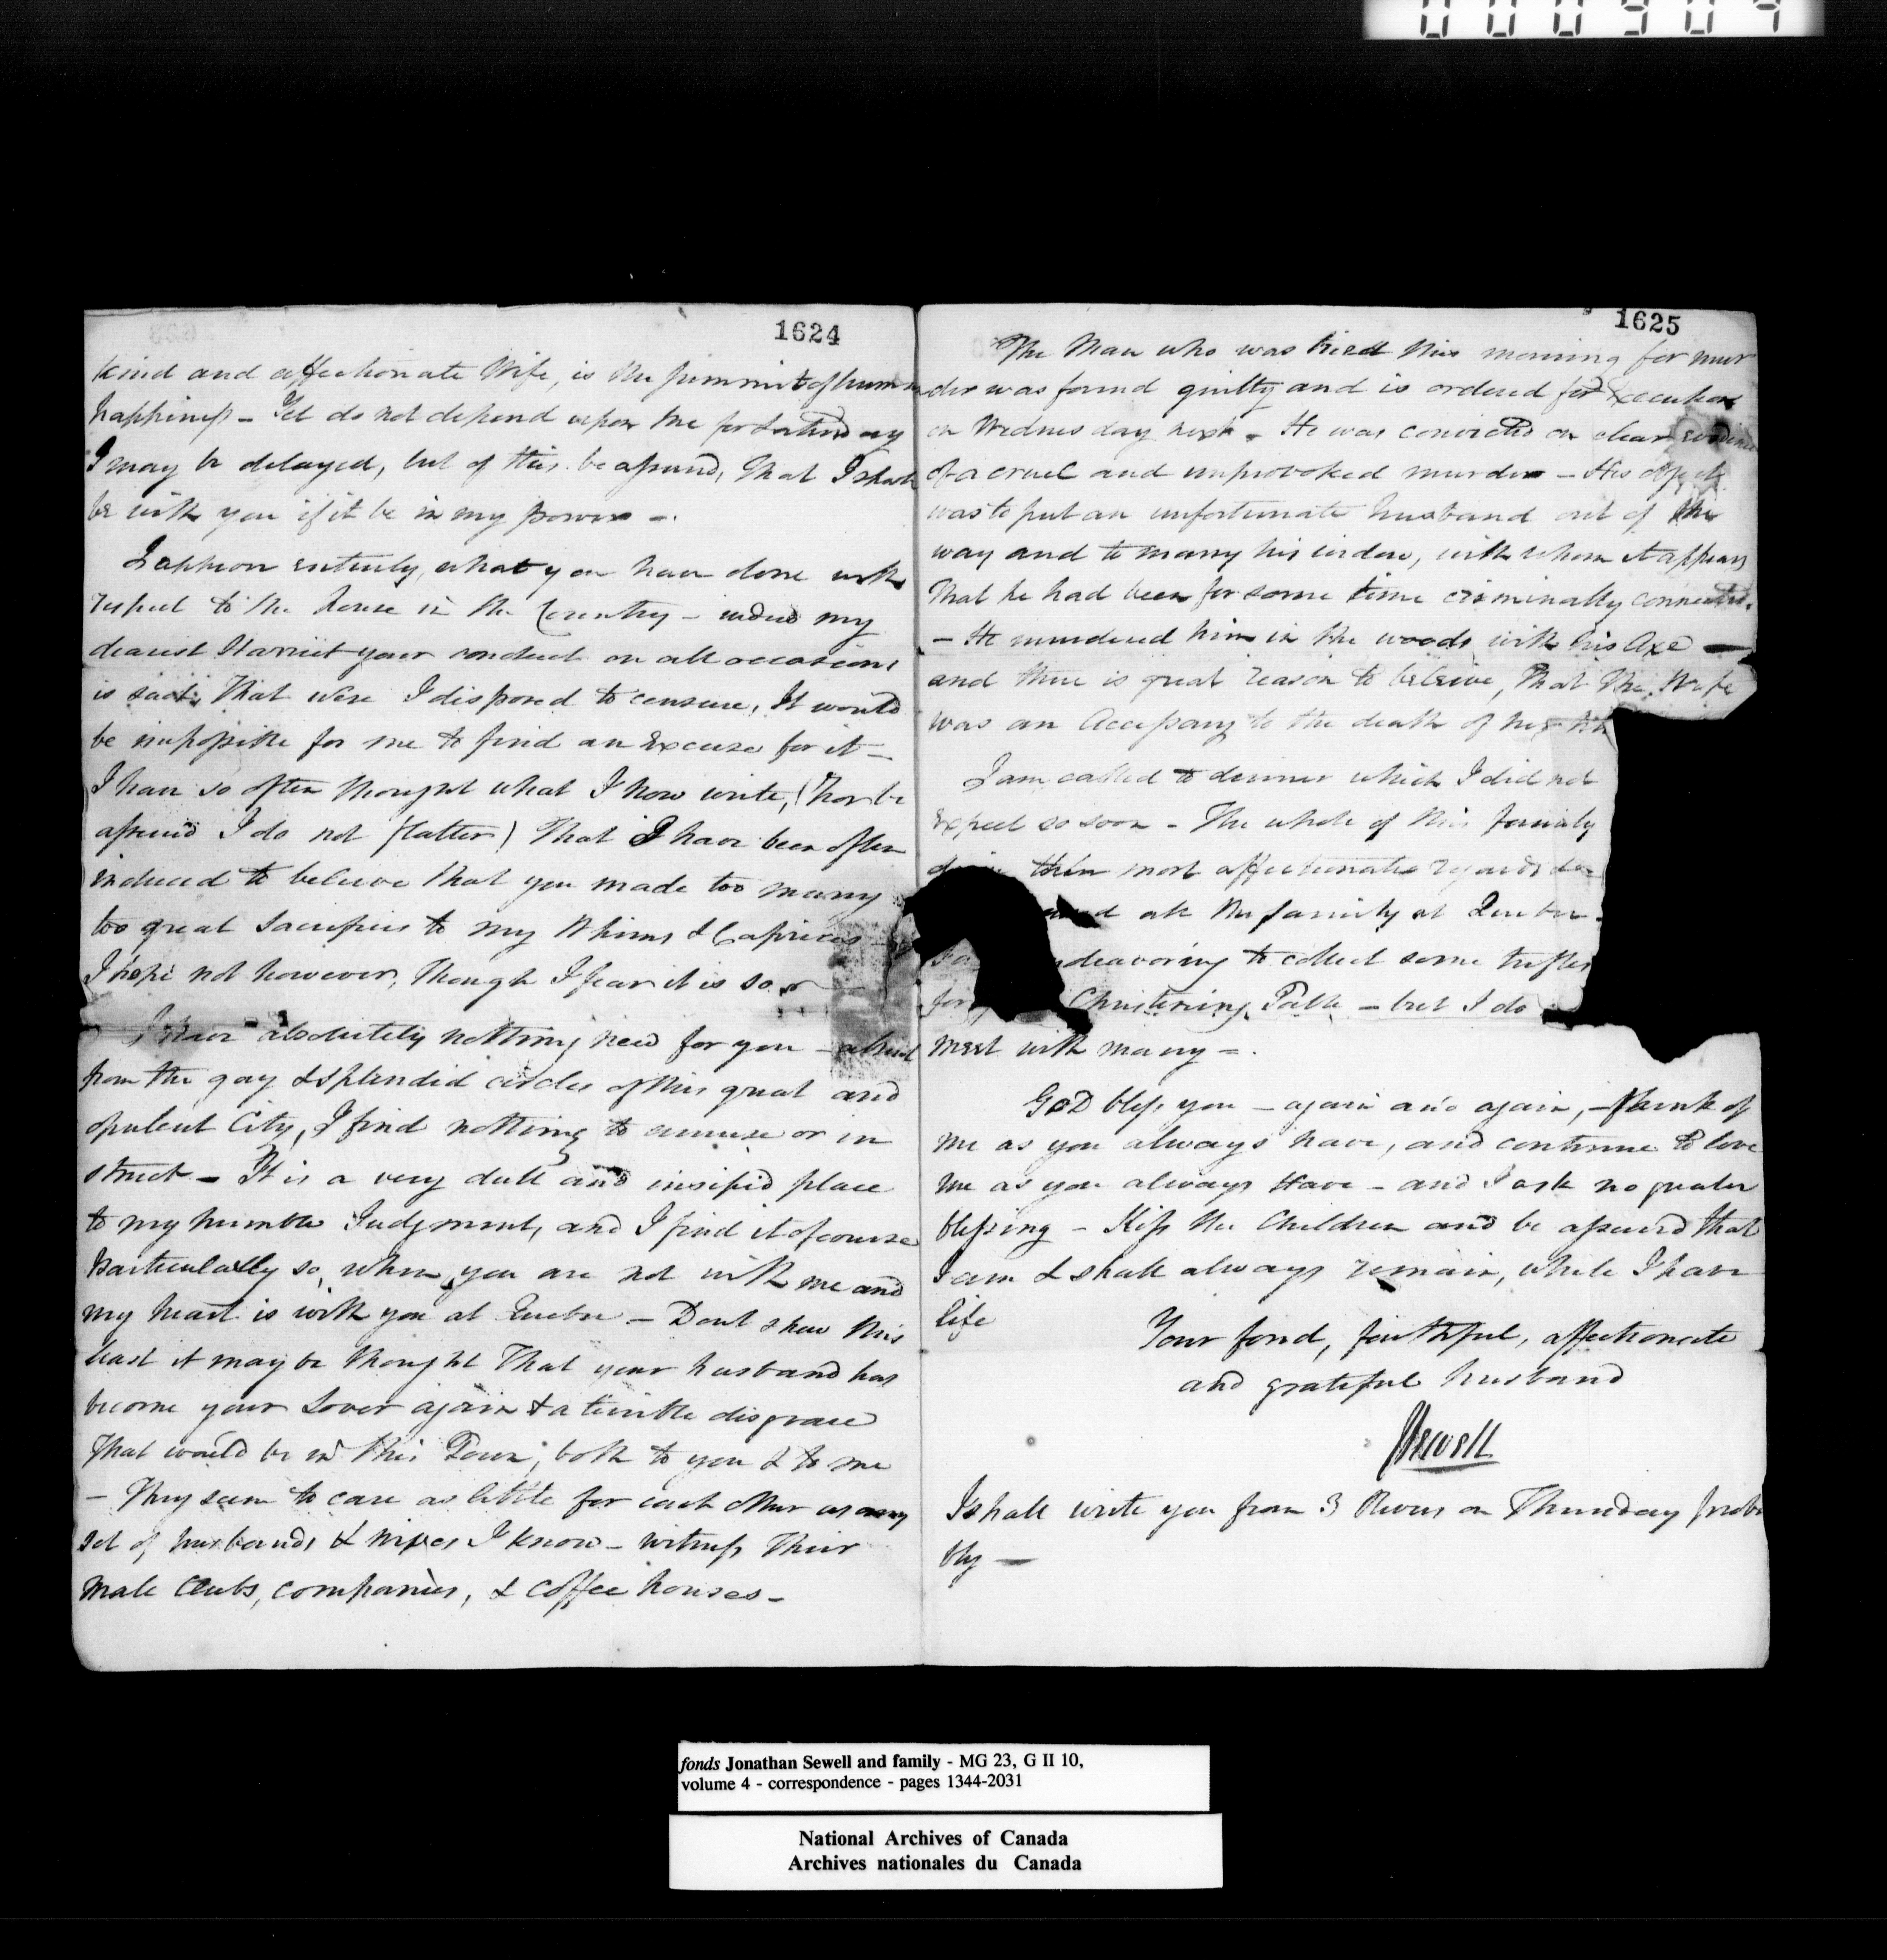 000904
1624
kind and affectionate Wife, is the summit of human
happiness - Yet do not depend upon me for Saturday
I may be delayed, but of this be assured, that I shall
be with you if it be in my power -.
I approve entirely, what you have done with
respect to the house in the Country - indeed my
dearest Harriet your conduct on all occasions
is such, That were I disposed to censure, It would
be impossible for me to find an Excuse for it -
I have so often thought what I now write, (Nor be
assured I do not flatter) That I have been often
induced to believe that you made too many
too great Sacrifices to my Whims & Caprices
I hope not however, Though I fear it is so
I have absolutely nothing new for you - absent
from the gay & splendid circles of this great and
opulent City, I find nothing to amuse or in
struct - It is a very dull and insipid place
to my humble Judgment, and I find it of course
particularly so, when you are not with me and
my heart is with you at Quebec - Dont shew this
least it may be thought That your husband has
become your Lover again & a terrible disgrace
That would be in this Town, both to you & to me
- They seem to care as little for each other as any
set of husbands & wives I know - witness Their
Male Clubs, companies, & Coffee houses -
1625
The Man who was tried this morning for mur
der was found guilty and is ordered for Execution
on Wednesday next - He was convicted on clear evidence
of a cruel and unprovoked murder - His object
was to put an unfortunate husband out of the
way and to marry his widow, with whom it appears
That he had been for some time criminally connected.
- He murdered him in the woods with his Axe -
and there is great reason to beleive, That the Wife
was an Accessary to the death of her
I am called to dinner which I did not
Expect so soon - The whole of this family
their most affectionate regards to
all the family at Quebec -
endeavoring to collect some trifles
for Christening - but I do
meet with many -.
God bless you - again and again, - think of
me as you always have, and continue to love
me as you always Have - and I ask no greater
blessing - Kiss the Children and be assured that
I am & shall always remain, while I have
life
Your fond, faithful, affectionate
and grateful husband
JSewell
I shall write you from 3 Rivers on Thursday proba
bly -
fonds Jonathan Sewell and family - MG 23, G II 10,
volume 4 - correspondence - pages 1344-2031
National Archives of Canada
Archives nationales du Canada